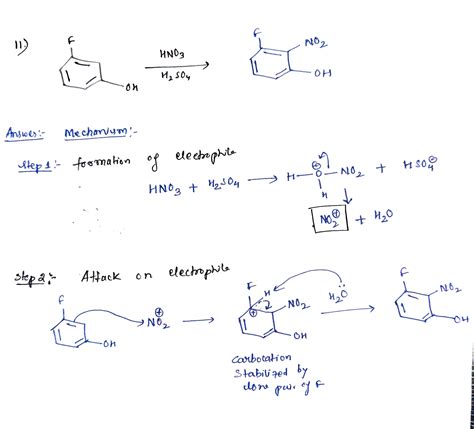 11)
F
HNO3
H2SO4
OH
F
NO2
OH
Answer:- Mechanism:-
Step 1:- formation of electrophile
HNO3 + H2SO4 → H-O⊕-NO2 + HSO4⊖
H
NO2⊕ + H2O
Step 2:- Attack on electrophile
F
OH
NO2⊕
F
H
⊕
NO2
OH
H2O
F
NO2
OH
Carbocation
Stabilized by
lone pair of F